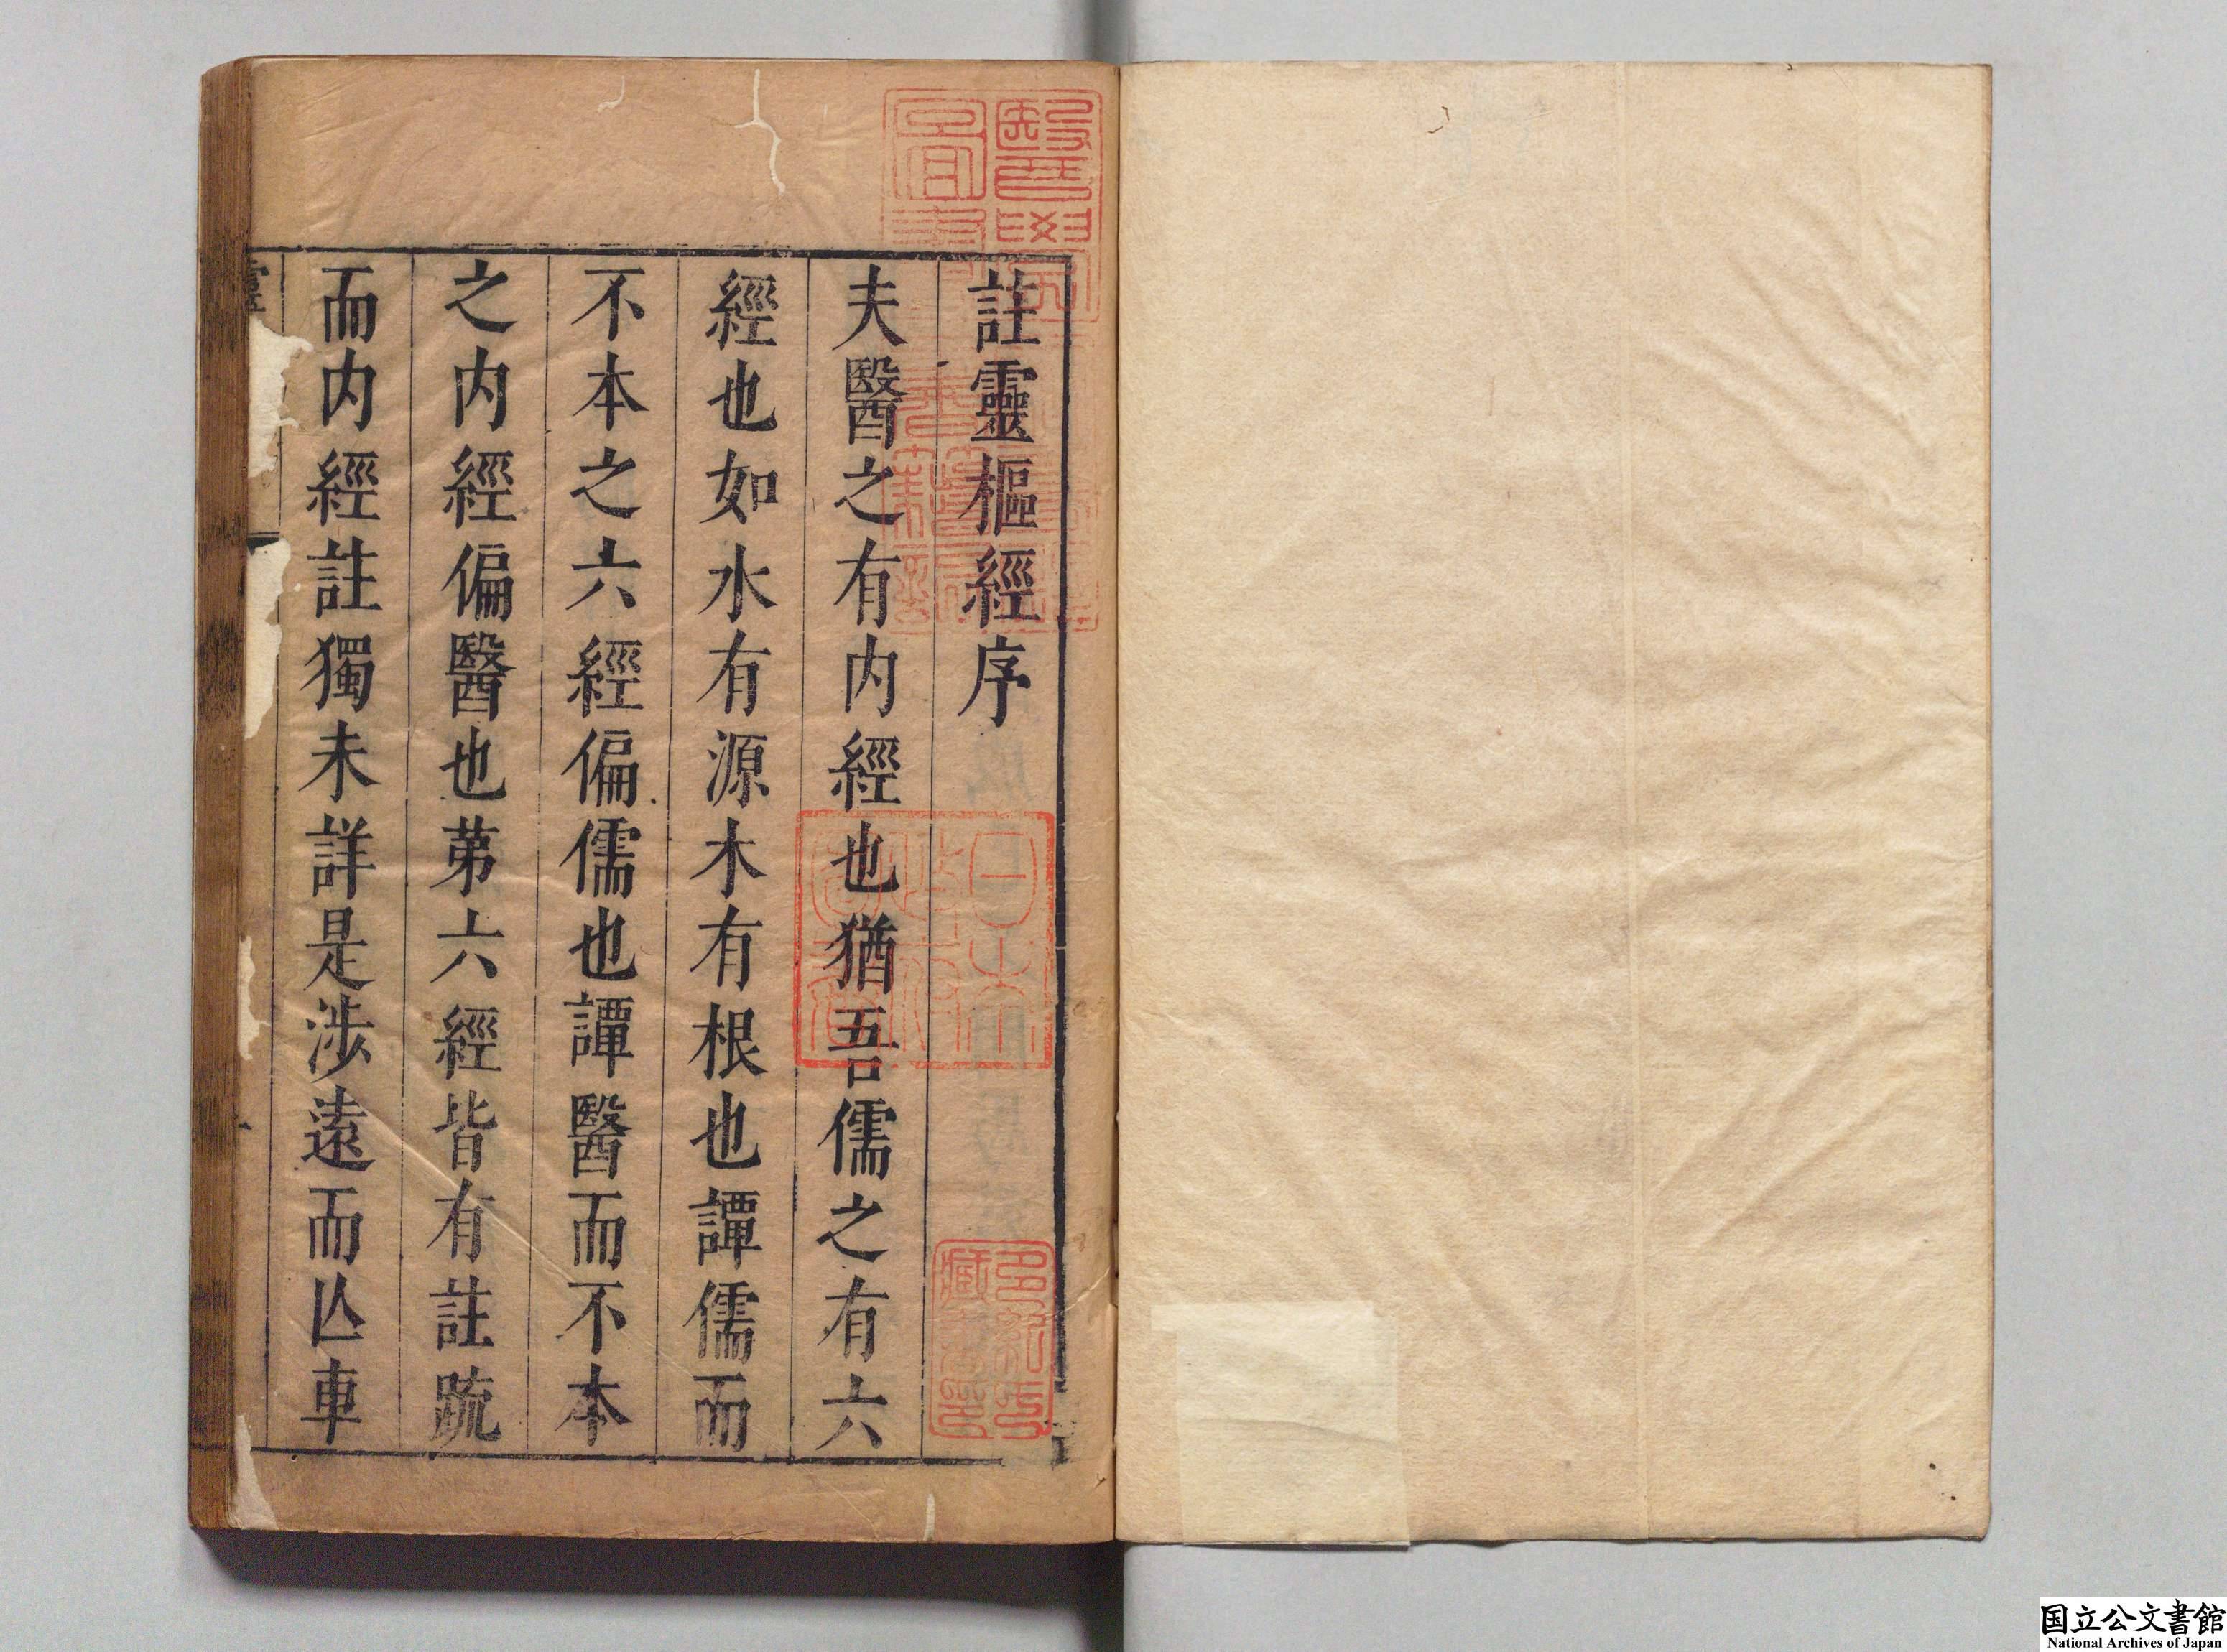 註靈樞經序
夫醫之有内經也猶吾儒之有六
經也如水有源木有根也譚儒而
不本之六經偏儒也譚醫而不本
之内經偏醫也苐六經皆有註疏
而内經註獨未詳是涉遠而亾車
醫學圖書
日本政府圖書
多紀氏藏書印
国立公文書館
National Archives of Japan